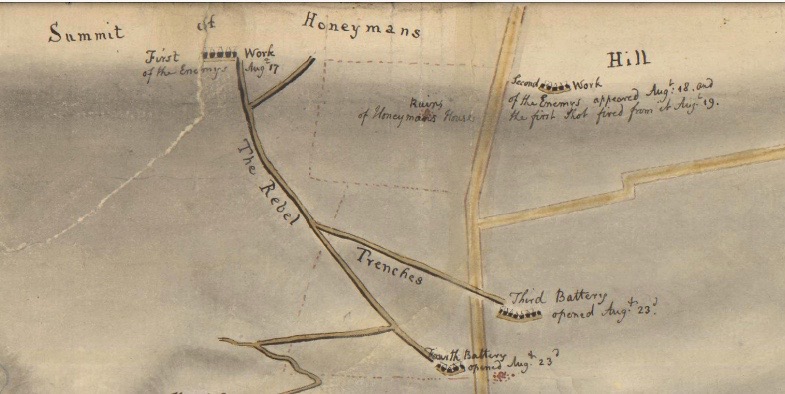 Summit of Honeymans Hill
First Work
of the Enemys Augt 17
Second Work
of the Enemys appeared Augt: 18. and
the first Shot fired from it Augt 19.
Ruins
of Honeyman's House
The Rebel Trenches
Third Battery
opened Augt 23d.
Fourth Battery
opened Augt 23d